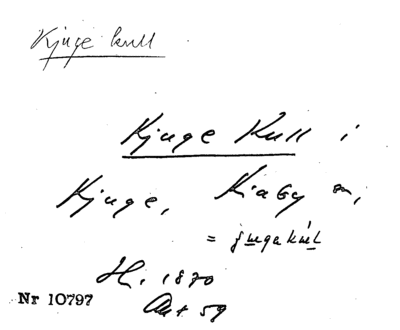 Kjuge kull
Kjuge Kull i
Kjuge, Kiaby sn,
= jugakúl
H. 1870
Nr 10797
59